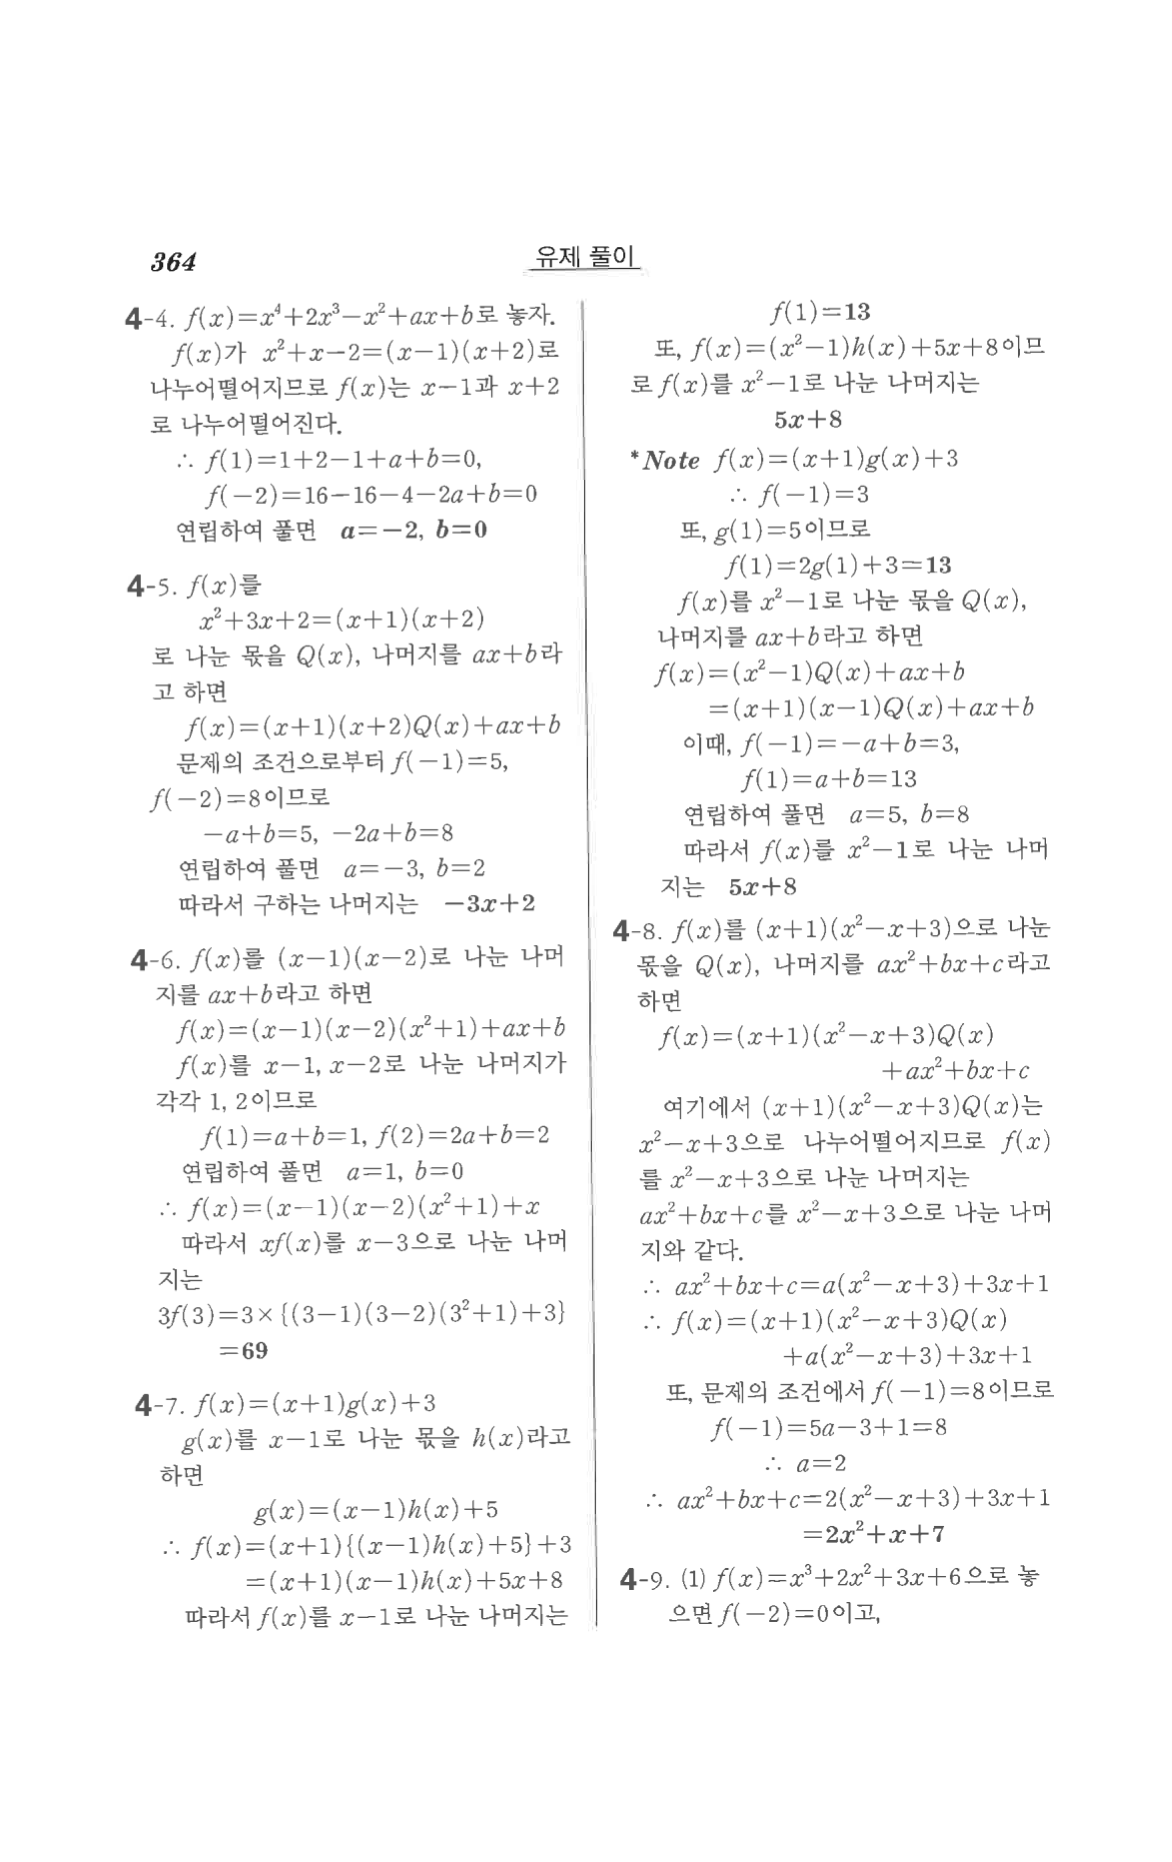 364
유제 풀이
4-4. f(x)=x⁴+2x³−x²+ax+b로 놓자.
f(x)가 x²+x−2=(x−1)(x+2)로
나누어떨어지므로 f(x)는 x−1과 x+2
로 나누어떨어진다.
∴ f(1)=1+2−1+a+b=0,
f(−2)=16−16−4−2a+b=0
연립하여 풀면 a=−2, b=0
4-5. f(x)를
x²+3x+2=(x+1)(x+2)
로 나눈 몫을 Q(x), 나머지를 ax+b라
고 하면
f(x)=(x+1)(x+2)Q(x)+ax+b
문제의 조건으로부터 f(−1)=5,
f(−2)=8이므로
−a+b=5, −2a+b=8
연립하여 풀면 a=−3, b=2
따라서 구하는 나머지는 −3x+2
4-6. f(x)를 (x−1)(x−2)로 나눈 나머
지를 ax+b라고 하면
f(x)=(x−1)(x−2)(x²+1)+ax+b
f(x)를 x−1, x−2로 나눈 나머지가
각각 1, 2이므로
f(1)=a+b=1, f(2)=2a+b=2
연립하여 풀면 a=1, b=0
∴ f(x)=(x−1)(x−2)(x²+1)+x
따라서 xf(x)를 x−3으로 나눈 나머
지는
3f(3)=3×{(3−1)(3−2)(3²+1)+3}
=69
4-7. f(x)=(x+1)g(x)+3
g(x)를 x−1로 나눈 몫을 h(x)라고
하면
g(x)=(x−1)h(x)+5
∴ f(x)=(x+1){(x−1)h(x)+5}+3
=(x+1)(x−1)h(x)+5x+8
따라서 f(x)를 x−1로 나눈 나머지는
f(1)=13
또, f(x)=(x²−1)h(x)+5x+8이므
로 f(x)를 x²−1로 나눈 나머지는
5x+8
*Note f(x)=(x+1)g(x)+3
∴ f(−1)=3
또, g(1)=5이므로
f(1)=2g(1)+3=13
f(x)를 x²−1로 나눈 몫을 Q(x),
나머지를 ax+b라고 하면
f(x)=(x²−1)Q(x)+ax+b
=(x+1)(x−1)Q(x)+ax+b
이때, f(−1)=−a+b=3,
f(1)=a+b=13
연립하여 풀면 a=5, b=8
따라서 f(x)를 x²−1로 나눈 나머
지는 5x+8
4-8. f(x)를 (x+1)(x²−x+3)으로 나눈
몫을 Q(x), 나머지를 ax²+bx+c라고
하면
f(x)=(x+1)(x²−x+3)Q(x)
+ax²+bx+c
여기에서 (x+1)(x²−x+3)Q(x)는
x²−x+3으로 나누어떨어지므로 f(x)
를 x²−x+3으로 나눈 나머지는
ax²+bx+c를 x²−x+3으로 나눈 나머
지와 같다.
∴ ax²+bx+c=a(x²−x+3)+3x+1
∴ f(x)=(x+1)(x²−x+3)Q(x)
+a(x²−x+3)+3x+1
또, 문제의 조건에서 f(−1)=8이므로
f(−1)=5a−3+1=8
∴ a=2
∴ ax²+bx+c=2(x²−x+3)+3x+1
=2x²+x+7
4-9. (1) f(x)=x³+2x²+3x+6으로 놓
으면 f(−2)=0이고,